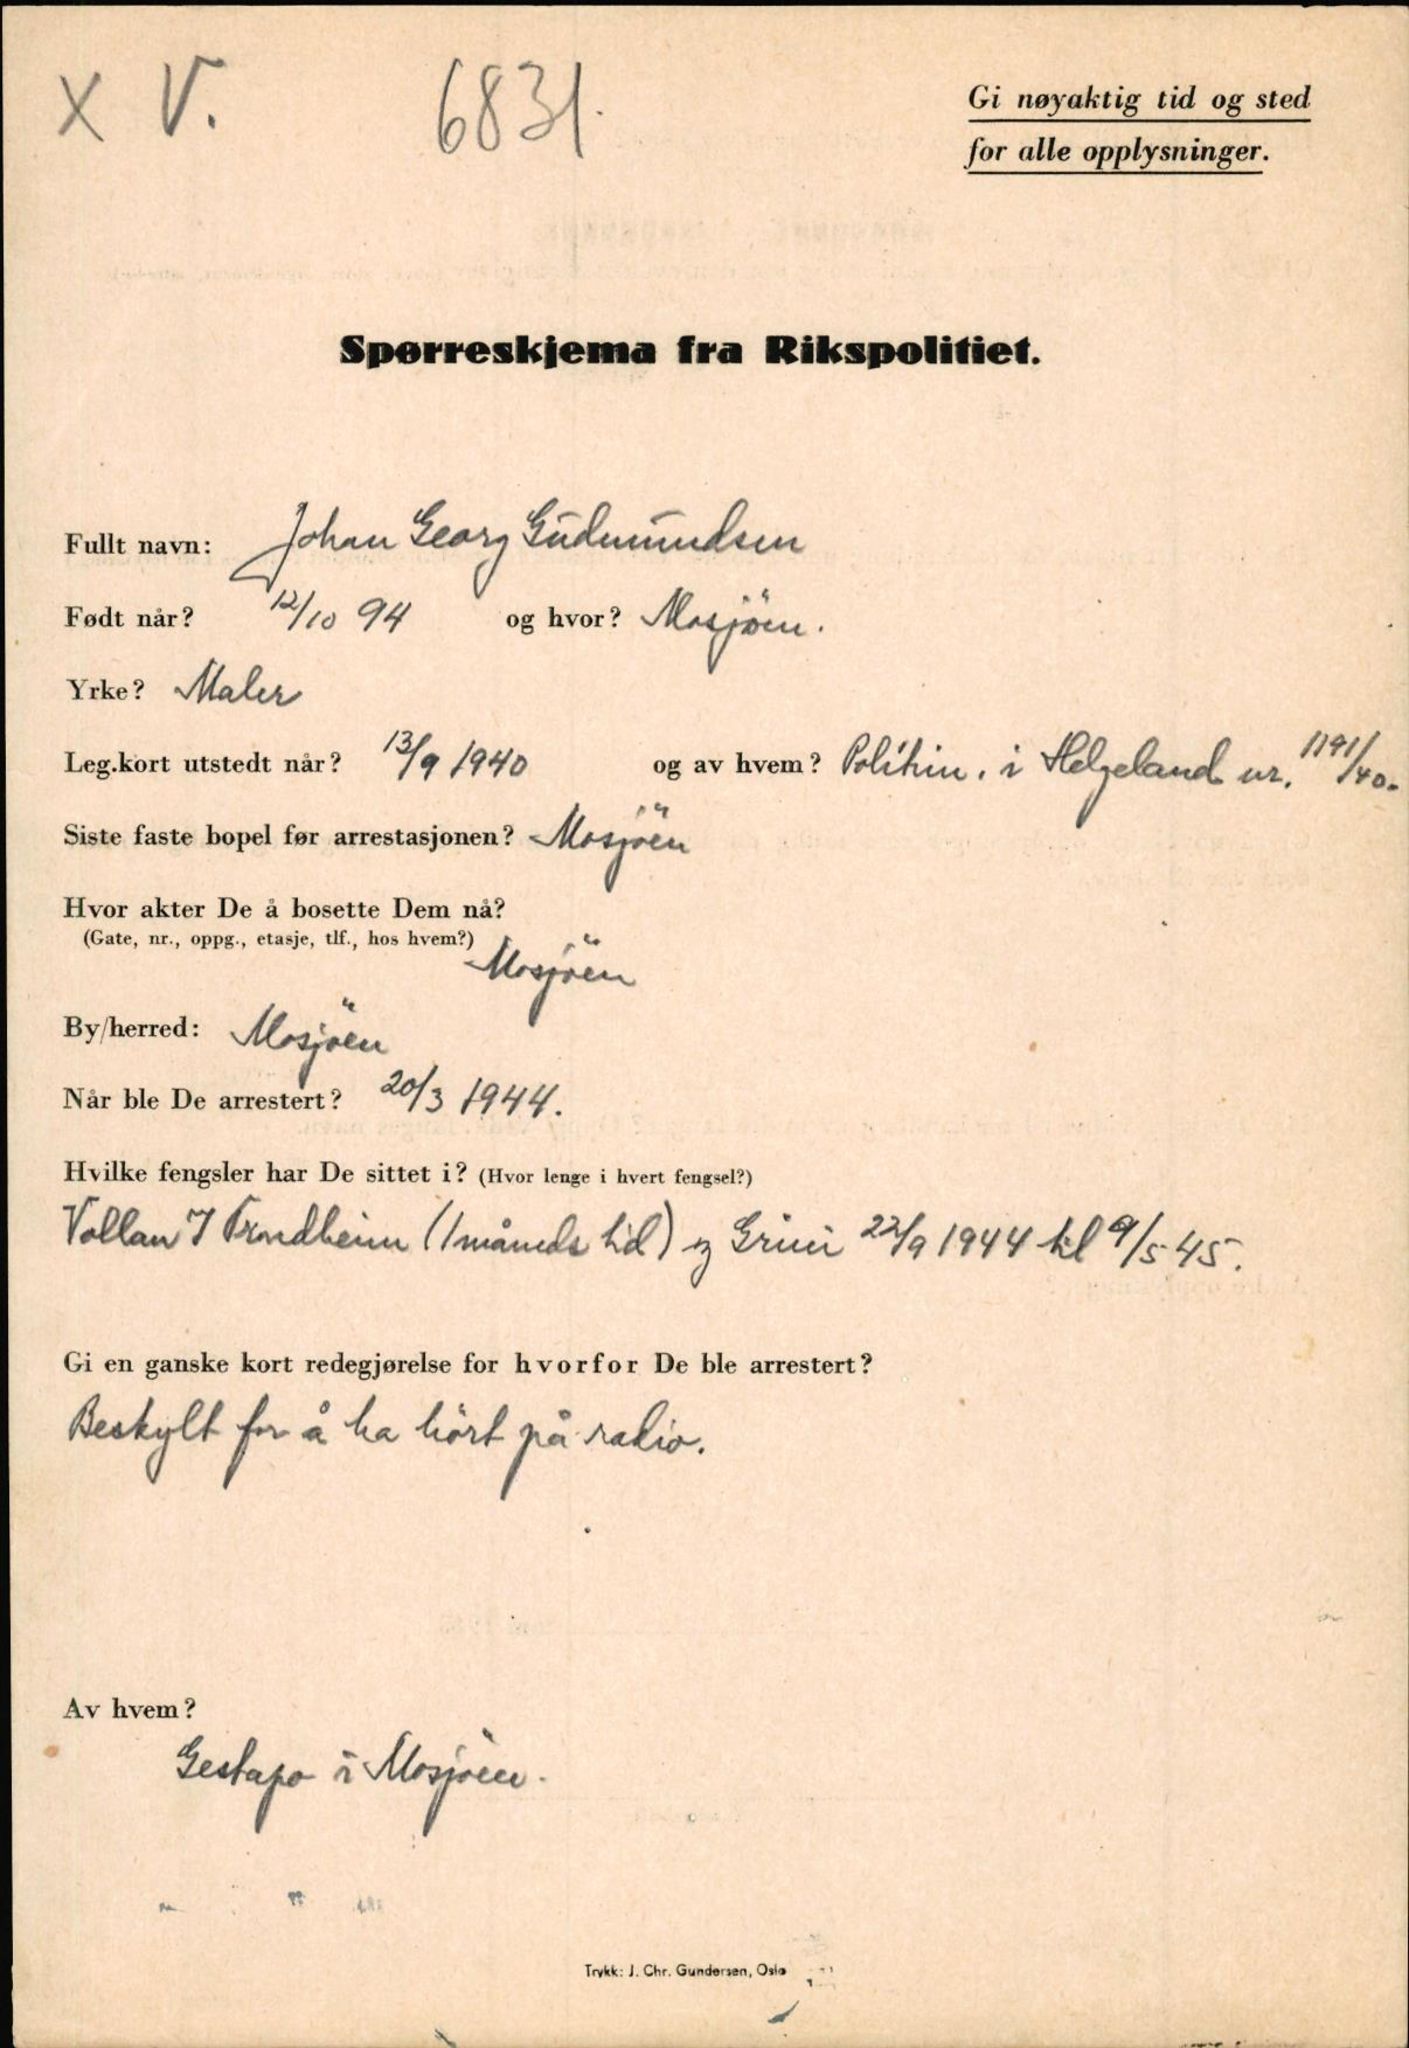 X V. 6831.
Gi nøyaktig tid og sted
for alle opplysninger.
Spørreskjema fra Rikspolitiet.
Fullt navn: Johan Georg Gudmundsen
Født når? 12/10 94 og hvor? Mosjöen.
Yrke? Maler
Leg.kort utstedt når? 13/9 1940 og av hvem? Politim. i Helgeland nr. 1191/40.
Siste faste bopel før arrestasjonen? Mosjöen
Hvor akter De å bosette Dem nå?
(Gate, nr., oppg., etasje, tlf., hos hvem?)
Mosjöen
By/herred: Mosjöen
Når ble De arrestert? 20/3 1944.
Hvilke fengsler har De sittet i? (Hvor lenge i hvert fengsel?)
Vollan I Trondheim (1 måneds tid) og Grini 22/9 1944 til 9/5-45.
Gi en ganske kort redegjørelse for hvorfor De ble arrestert?
Beskylt for å ha hört på radio.
Av hvem?
Gestapo i Mosjöen.
Trykk: J. Chr. Gundersen, Oslo